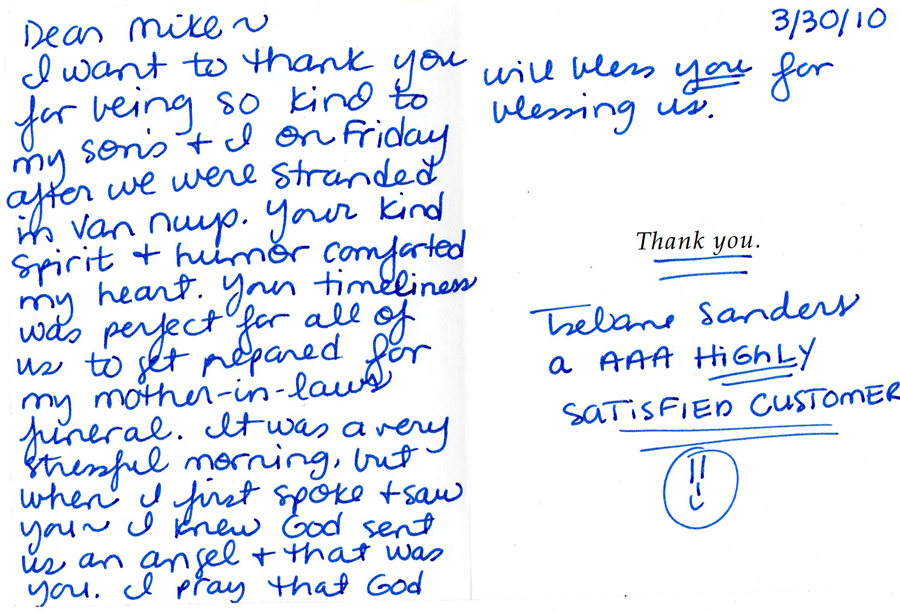 Dear Mike ~
I want to thank you
for being so kind to
my son's + I on Friday
after we were stranded
in Van Nuys. Your kind
spirit + humor comforted
my heart. Your timeliness
was perfect for all of
us to get prepared for
my mother-in-laws
funeral. It was a very
stressful morning, but
when I first spoke + saw
you ~ I knew God sent
us an angel + that was
you. I pray that God
3/30/10
will bless you for
blessing us.
Thank you.
Sanders
a AAA HIGHLY
SATISFIED CUSTOMER